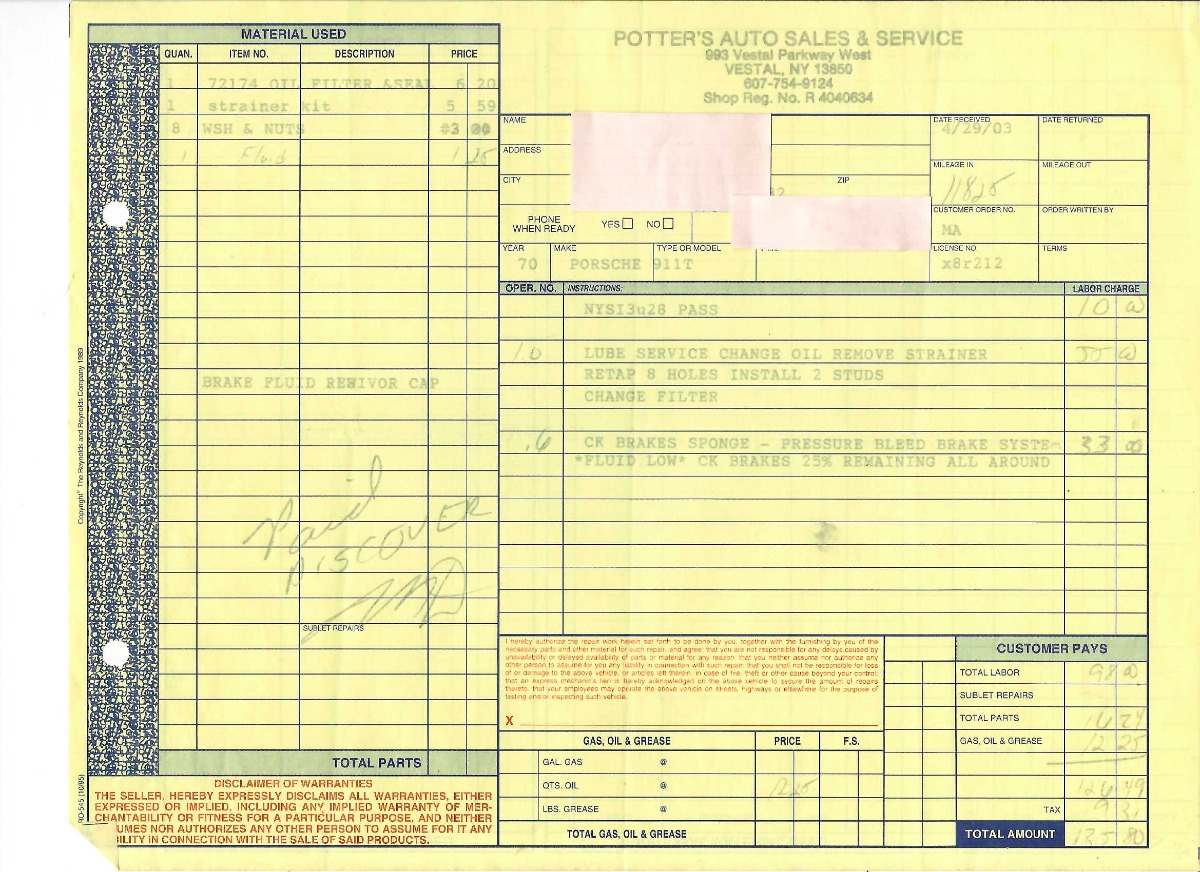 MATERIAL USED
QUAN. ITEM NO. DESCRIPTION PRICE
1 72174 OIL FILTER &SEAL 6 20
1 strainer kit 5 59
8 WSH & NUTS #3 20
1 Fluid 1 25
BRAKE FLUID REHIVOR CAP
Paid
DISCOVER
SUBLET REPAIRS
TOTAL PARTS
DISCLAIMER OF WARRANTIES
THE SELLER, HEREBY EXPRESSLY DISCLAIMS ALL WARRANTIES, EITHER
EXPRESSED OR IMPLIED, INCLUDING ANY IMPLIED WARRANTY OF MER-
CHANTABILITY OR FITNESS FOR A PARTICULAR PURPOSE, AND NEITHER
UMES NOR AUTHORIZES ANY OTHER PERSON TO ASSUME FOR IT ANY
ILITY IN CONNECTION WITH THE SALE OF SAID PRODUCTS.
Copyright© The Reynolds and Reynolds Company 1989
RO-545 (10/85)
POTTER'S AUTO SALES & SERVICE
993 Vestal Parkway West
VESTAL, NY 13850
607-754-9124
Shop Reg. No. R 4040634
NAME DATE RECEIVED DATE RETURNED
4/29/03
ADDRESS
MILEAGE IN MILEAGE OUT
CITY ZIP
11825
CUSTOMER ORDER NO. ORDER WRITTEN BY
PHONE WHEN READY YES NO
MA
YEAR MAKE TYPE OR MODEL LICENSE NO. TERMS
70 PORSCHE 911T x8r212
OPER. NO. INSTRUCTIONS: LABOR CHARGE
NYSI3u28 PASS 10 00
1.0 LUBE SERVICE CHANGE OIL REMOVE STRAINER 55 00
RETAP 8 HOLES INSTALL 2 STUDS
CHANGE FILTER
.6 CK BRAKES SPONGE - PRESSURE BLEED BRAKE SYSTEM 33 00
*FLUID LOW* CK BRAKES 25% REMAINING ALL AROUND
I hereby authorize the repair work herein set forth to be done by you, together with the furnishing by you of the
necessary parts and other material for such repair, and agree: that you are not responsible for any delays caused by
unavailability or delayed availability of parts or material for any reason; that you neither assume nor authorize any
other person to assume for you any liability in connection with such repair; that you shall not be responsible for loss
of or damage to the above vehicle, or articles left therein, in case of fire, theft or other cause beyond your control;
that an express mechanic's lien is hereby acknowledged on the above vehicle to secure the amount of repairs
thereto; that your employees may operate the above vehicle on streets, highways or elsewhere for the purpose of
testing and/or inspecting such vehicle.
X
GAS, OIL & GREASE PRICE F.S.
GAL. GAS @
QTS. OIL @ 12 25
LBS. GREASE @
TOTAL GAS, OIL & GREASE
CUSTOMER PAYS
TOTAL LABOR 98 00
SUBLET REPAIRS
TOTAL PARTS 16 24
GAS, OIL & GREASE 12 25
126 49
TAX 9 31
TOTAL AMOUNT 135 80